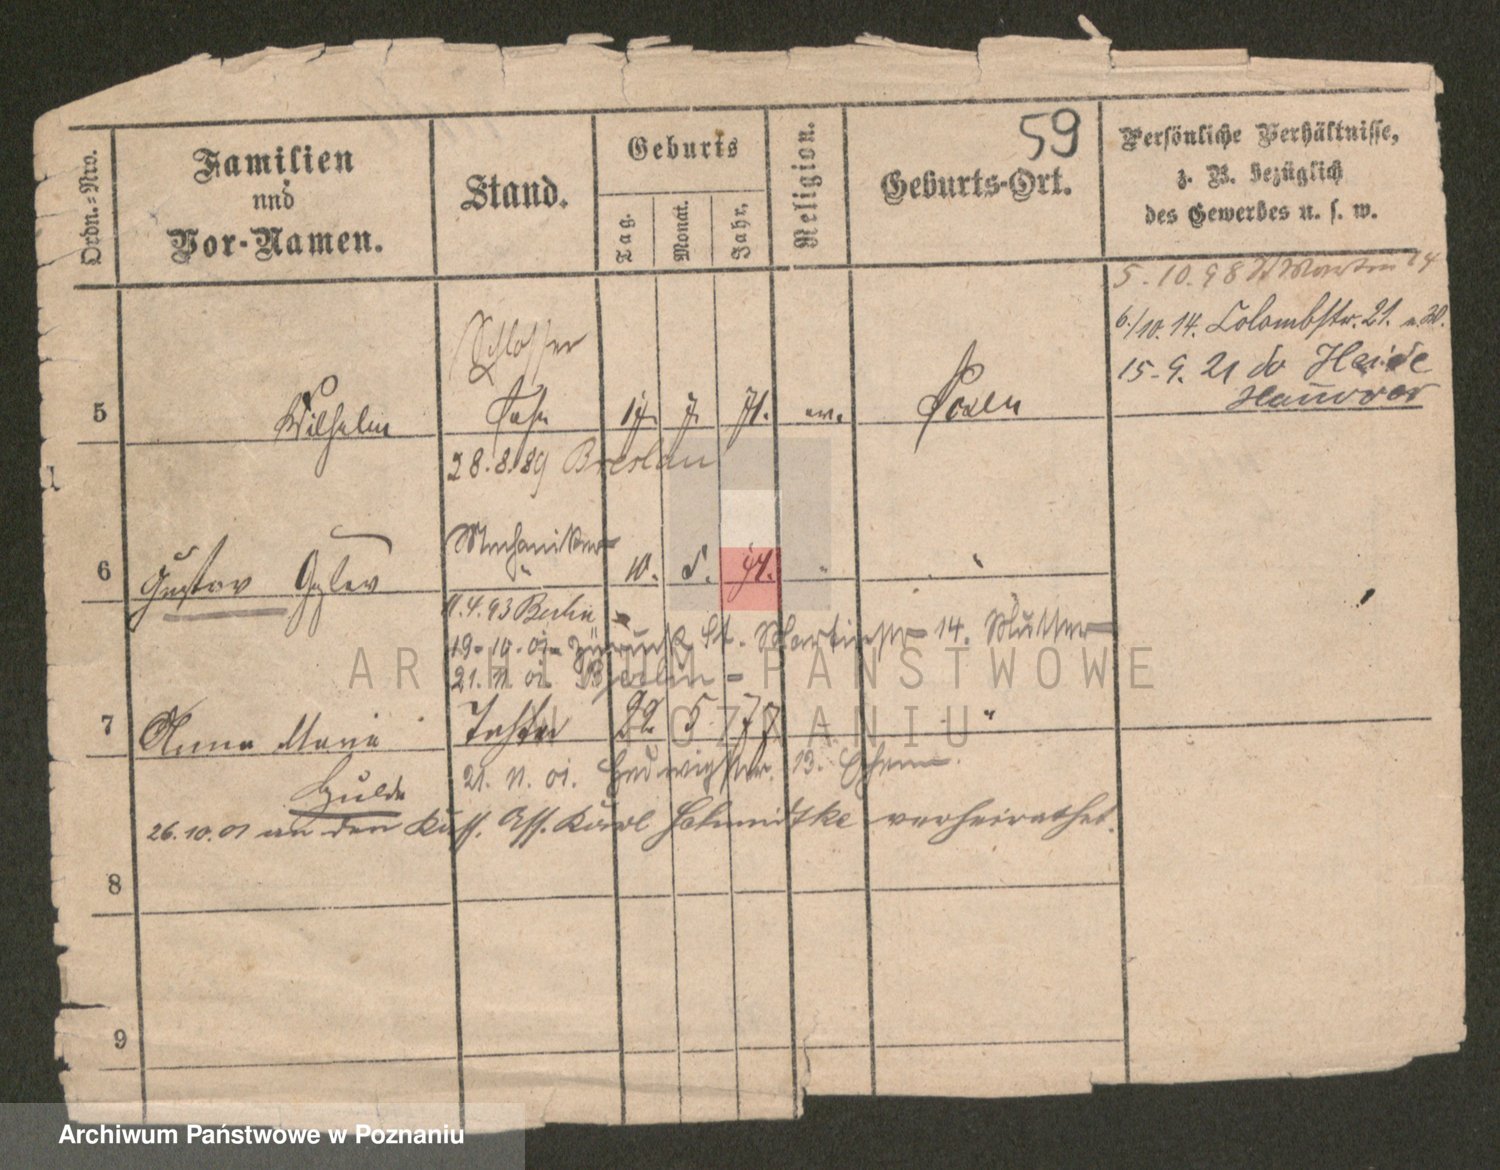 59
Ordn.-Nro.
Familien
und
Vor-Namen.
Stand.
Geburts
Tag.
Monat.
Jahr.
Religion.
Geburts-Ort.
Persönliche Verhältnisse,
z. B. bezüglich
des Gewerbes u. s. w.
5.10.98 St Martin 24
6/10.14. Colombstr. 21.
15-9.21 do Heide
Hannover
Schlosser
5 Wilhelm Sohn 17. 7. 71. ev. Posen
28.8.89 Breslau
Mechaniker
6 Gustav " 10. 5. 74. " "
11.4.93 Berlin
19-10-01 zurück St. Martinstr 14. Mutter
21.11.01 Berlin
7 Anna Marie Tochter 22. 5 77 "
Hulda
21.11.01. Hedwigstr. 13. Ehem.
26.10.01 an den Ass. Karl Schmidtke verheirathet.
8
9
ARCHIWUM PAŃSTWOWE
W POZNANIU
Archiwum Państwowe w Poznaniu